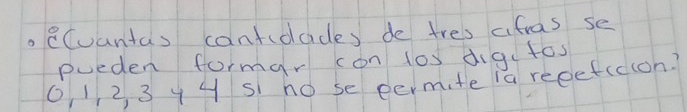 • ¿Cuantas cantidades de tres cifras se
pueden formar con los digitos
0, 1, 2, 3 y 4 si no se permite la repeticion?